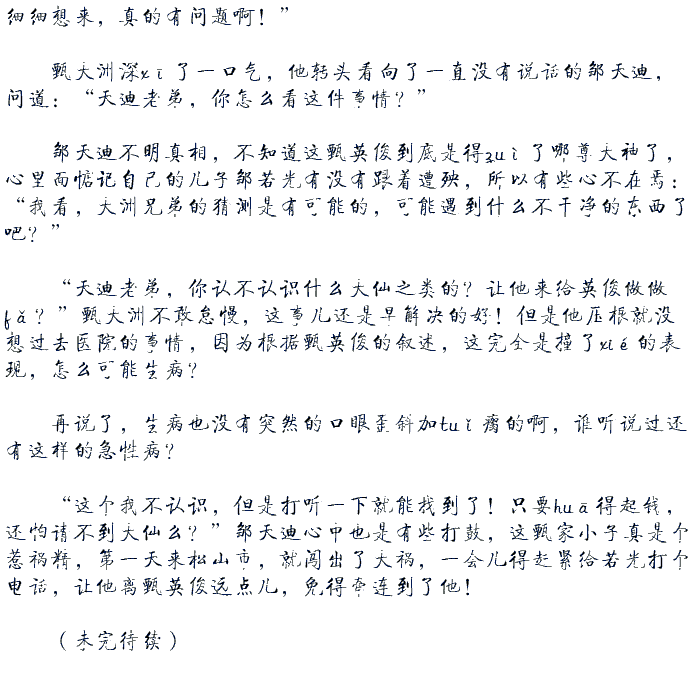 细细想来，真的有问题啊！”
甄大洲深xī了一口气，他转头看向了一直没有说话的邹天迪，
问道：“天迪老弟，你怎么看这件事情？”
邹天迪不明真相，不知道这甄英俊到底是得zuì了哪尊大神了，
心里面惦记自己的儿子邹若光有没有跟着遭殃，所以有些心不在焉：
“我看，大洲兄弟的猜测是有可能的，可能遇到什么不干净的东西了
吧？”
“天迪老弟，你认不认识什么大仙之类的？让他来给英俊做做
fǎ？”甄大洲不敢怠慢，这事儿还是早解决的好！但是他压根就没
想过去医院的事情，因为根据甄英俊的叙述，这完全是撞了xié的表
现，怎么可能生病？
再说了，生病也没有突然的口眼歪斜加tuǐ瘸的啊，谁听说过还
有这样的急性病？
“这个我不认识，但是打听一下就能找到了！只要huā得起钱，
还怕请不到大仙么？”邹天迪心中也是有些打鼓，这甄家小子真是个
惹祸精，第一天来松山市，就闯出了大祸，一会儿得赶紧给若光打个
电话，让他离甄英俊远点儿，免得牵连到了他！
（未完待续）